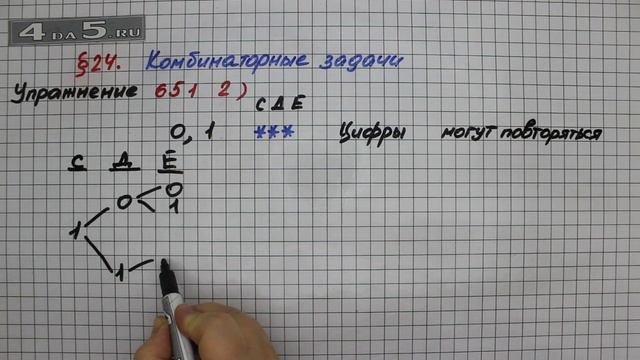 4 DA 5.RU
§24. Комбинаторные задачи
Упражнение 651 2)
С Д Е
0, 1 *** Цифры могут повторяться
С Д Е
0
0
1
1
1